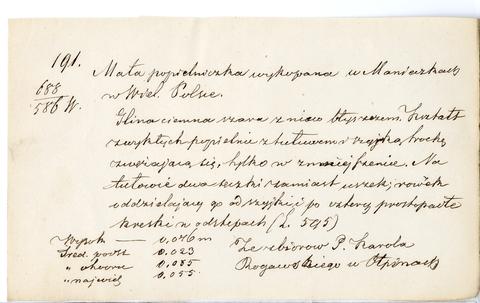 191.
688
586 W.
Mała popielniczka wykopana w Manieczkach
w Wiel. Polsce.
Glina ciemna szara z nieco błyszczem. Kształt
zwykłych popielnic z tułuwem i szyjką, trochę
zwężającą się, tylko w zmniejszenie. Na
tułowie dwa sęczki zamiast uszek; rowek
oddzielający go od szyjki i po cztery prostopadłe
kreski w odstępach (L. 595)
Wysok — 0,076 m
Śred. podst 0.023
" otworu 0.055
" najwięk 0.055.
Ze zbiorów P. Karola
Rogawskiego w Ołpinach